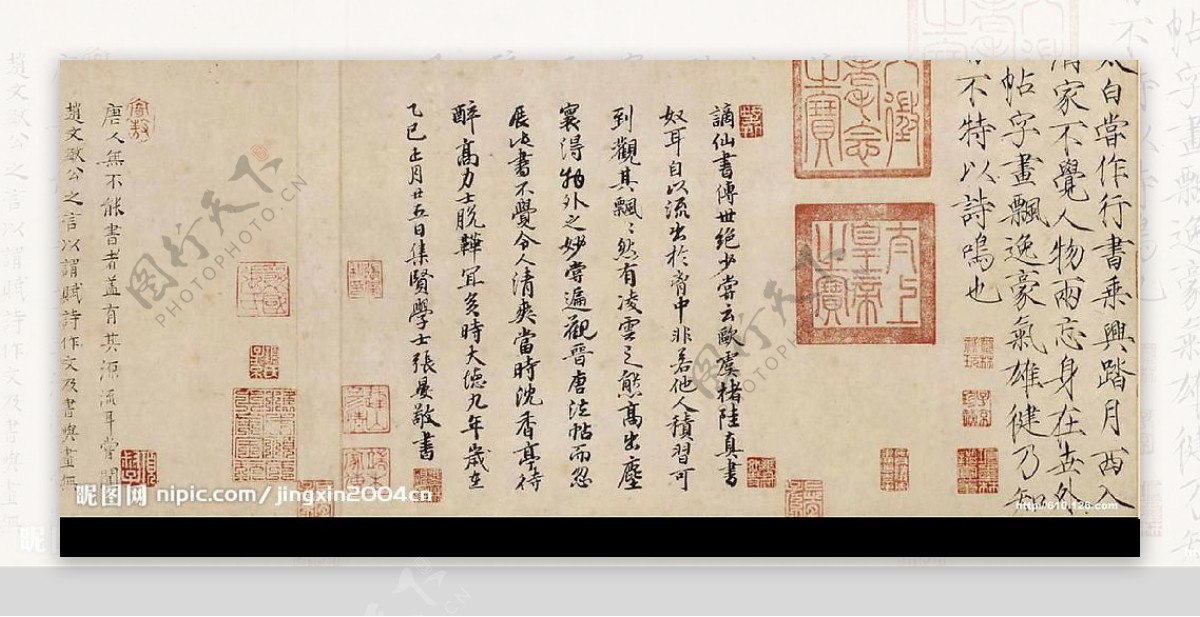 太白嘗作行書乘興踏月西入
酒家不覺人物兩忘身在世外
帖字畫飄逸豪氣雄健乃知
不特以詩鳴也
太上
皇帝
之寶
八徵
耄念
之寶
謫仙書傳世絕少嘗云歐虞褚陸真書
奴耳自以流出於胷中非若他人積習可
到觀其飄〻然有凌雲之態高出塵
寰得物外之妙嘗遍觀晉唐法帖而忽
展此書不覺令人清爽當時沈香亭待
醉高力士脫鞾宜矣時大德九年歲在
乙巳上月廿五日集賢學士張晏敬書
唐人無不能書者蓋有其源流耳嘗聞
趙文敏公之言以謂賦詩作文及書與畫無
昵图网 nipic.com/jingxin2004cn
http://610.126.com
图行天下
PHOTOPHOTO.CN